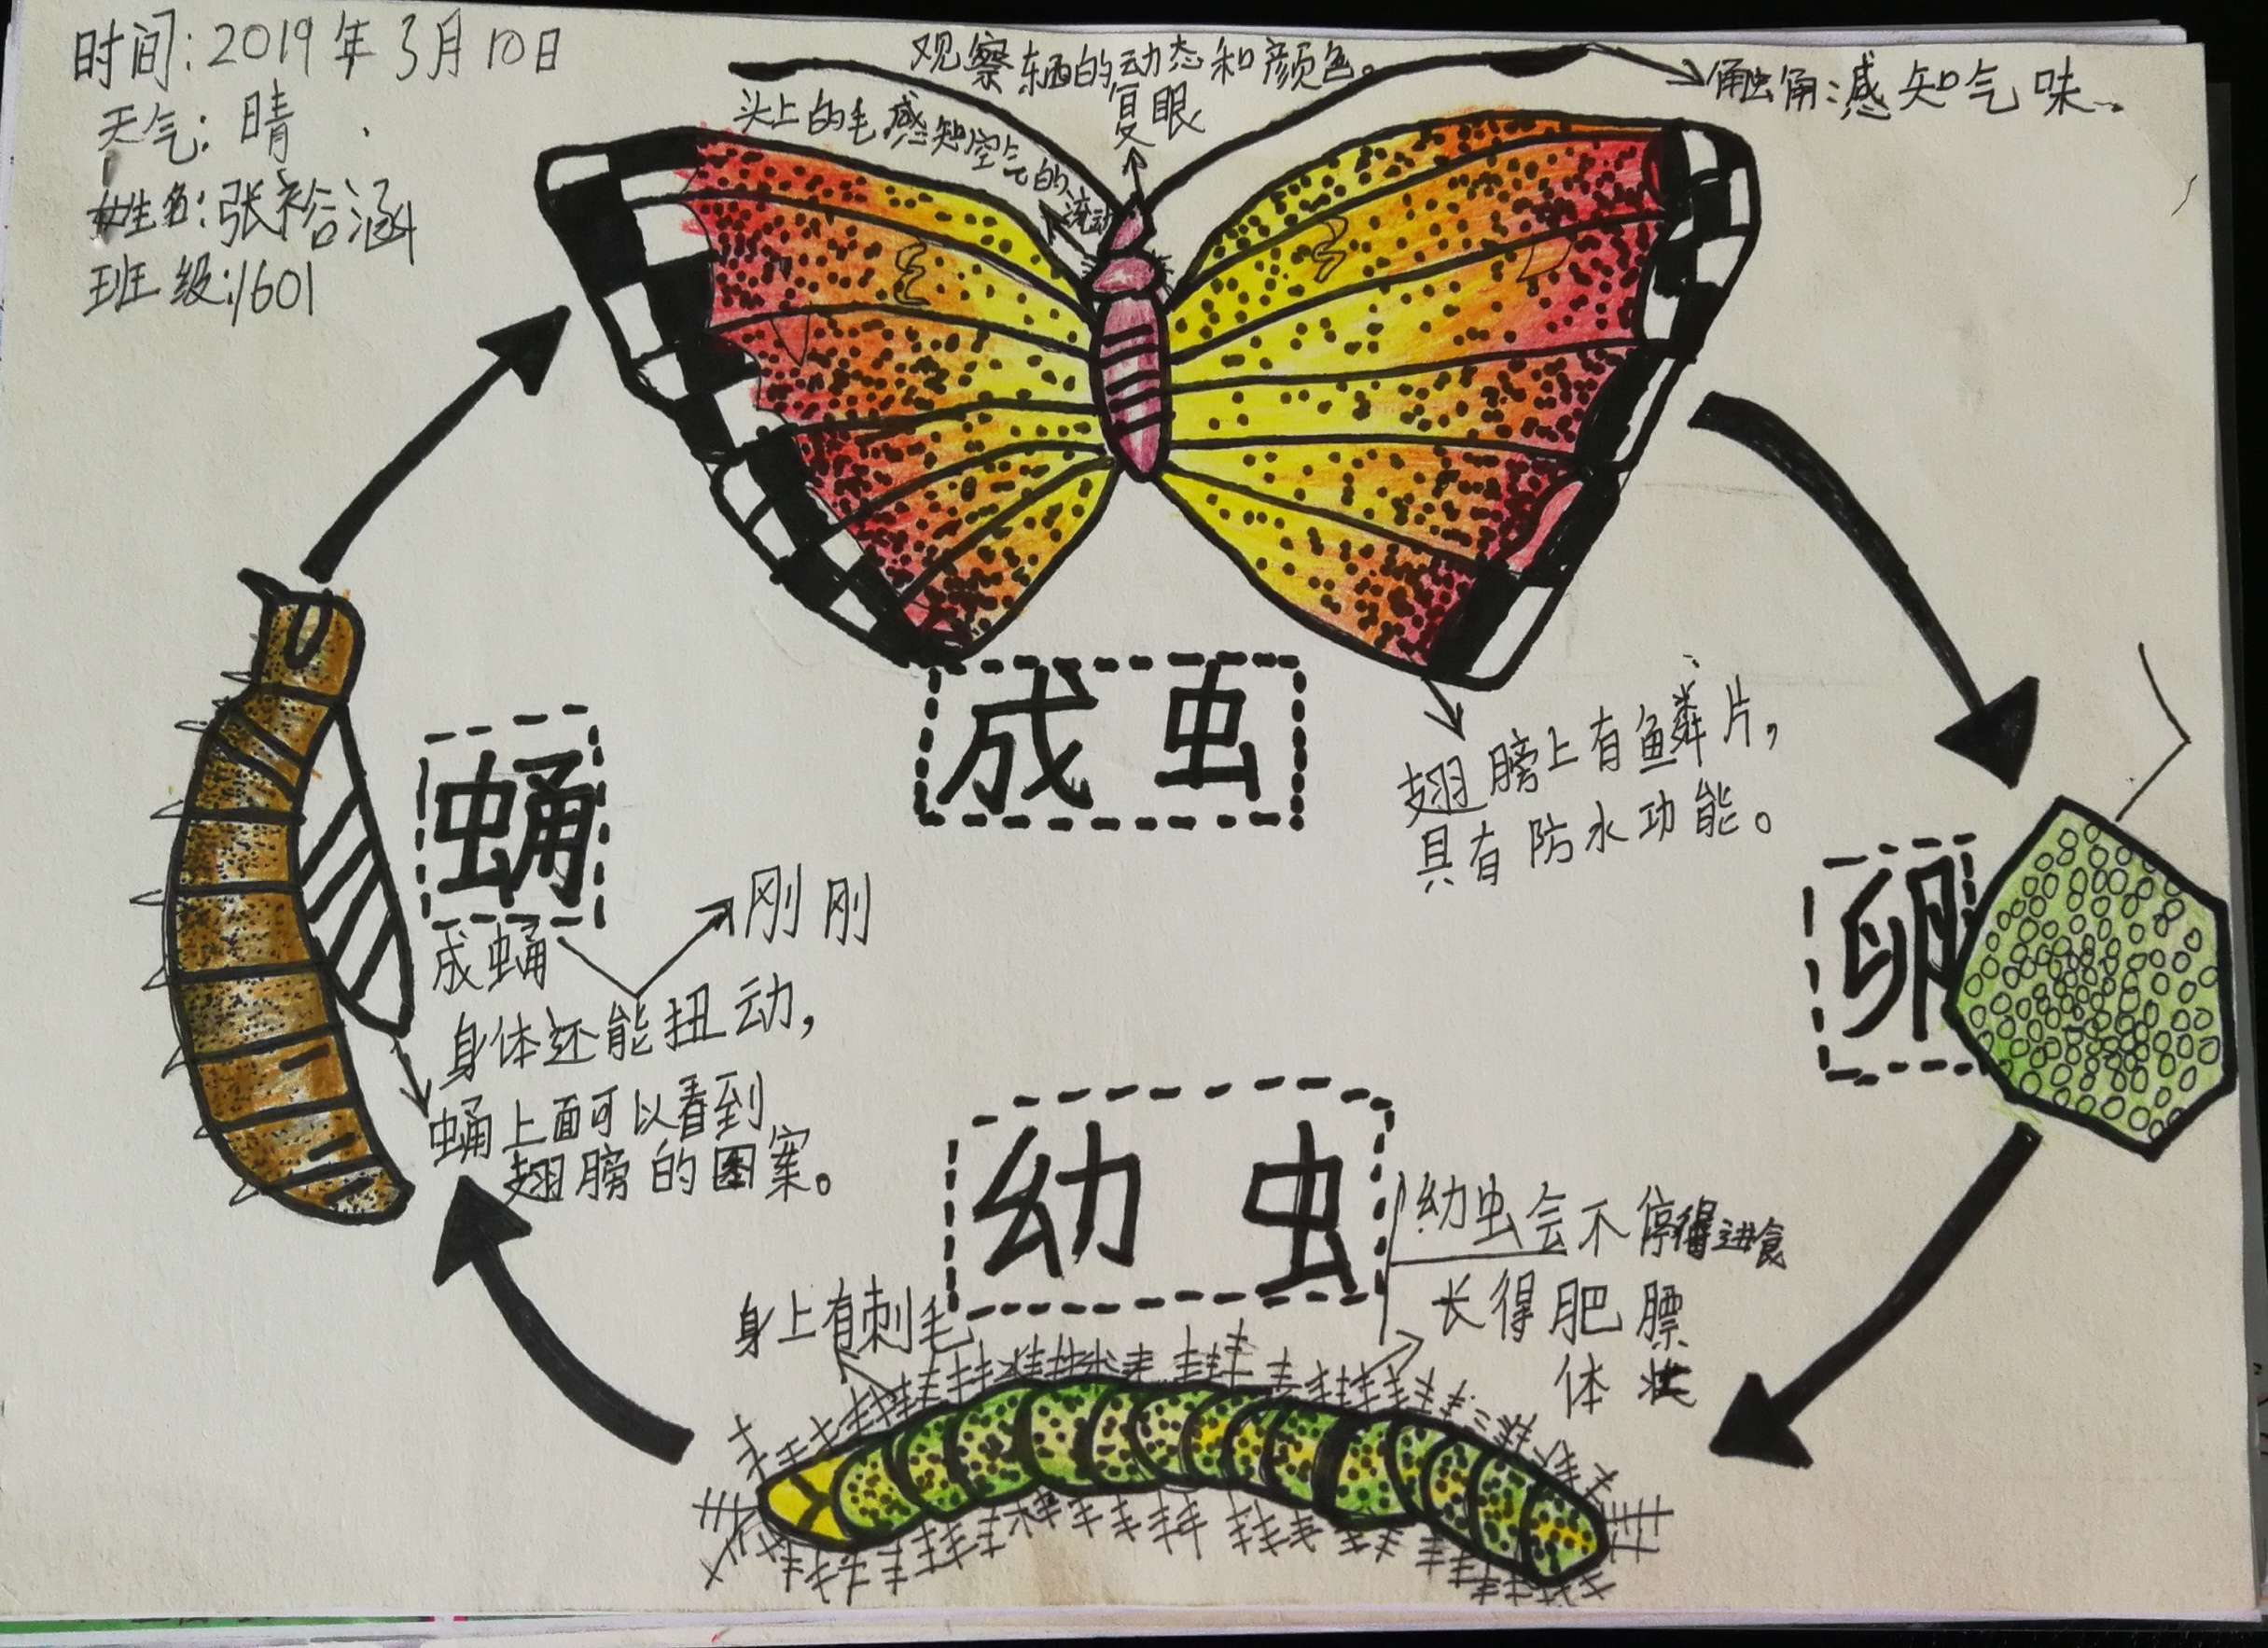 时间:2019年3月10日
天气:晴
姓名:张裕涵
班级:1601
观察东西的动态和颜色。
复眼
头上的毛感知空气的流动
触角:感知气味
成虫
翅膀上有鳞片,
具有防水功能。
卵
蛹
刚刚
成蛹
身体还能扭动,
蛹上面可以看到
翅膀的图案。
幼虫
幼虫会不停得进食
长得肥膘
体壮
身上有刺毛